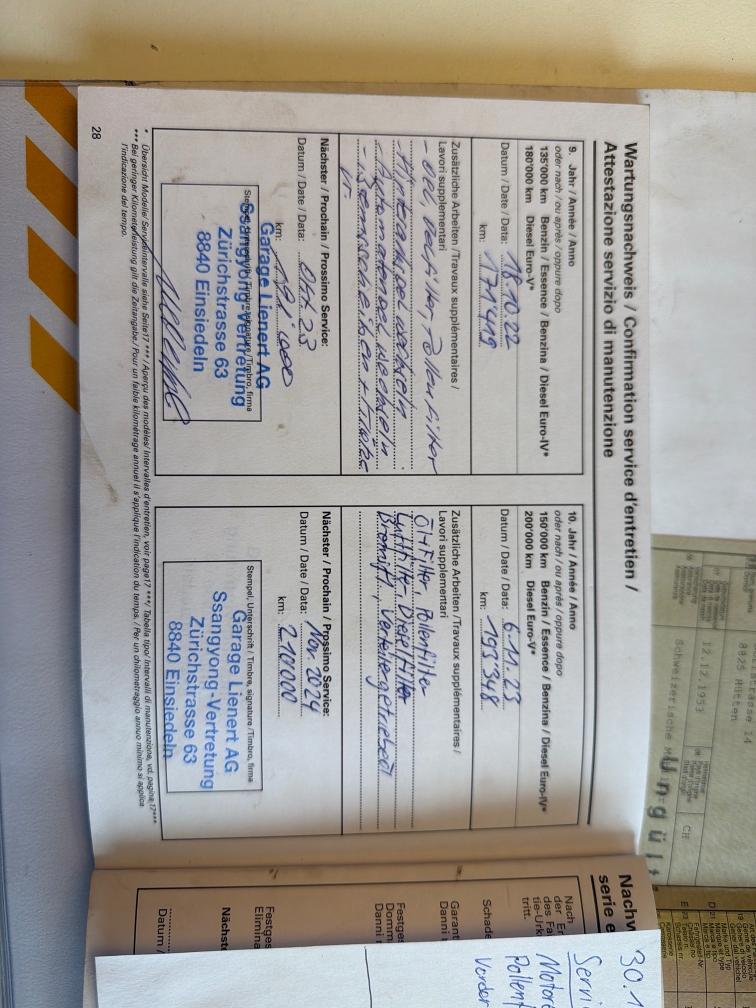 Wartungsnachweis / Confirmation service d'entretien /
Attestazione servizio di manutenzione
9. Jahr / Année / Anno
oder nach / ou après / oppure dopo
135'000 km Benzin / Essence / Benzina / Diesel Euro-IV*
180'000 km Diesel Euro-V*
Datum / Date / Data: 18.10.22
km: 171'419
Zusätzliche Arbeiten / Travaux supplémentaires /
Lavori supplementari
- Oel, Oelfilter, Pollenfilter
- Hinterachsoel wechseln
- Automatenoel wechseln
- Bremsscheiben +
Nächster / Prochain / Prossimo Service:
Datum / Date / Data: Okt. 23
km: 191'000
Stempel, Unterschrift / Timbre, signature / Timbro, firma
Garage Lienert AG
Ssangyong-Vertretung
Zürichstrasse 63
8840 Einsiedeln
10. Jahr / Année / Anno
oder nach / ou après / oppure dopo
150'000 km Benzin / Essence / Benzina / Diesel Euro-IV*
200'000 km Diesel Euro-V*
Datum / Date / Data: 6.11.23
km: 193'348
Zusätzliche Arbeiten / Travaux supplémentaires /
Lavori supplementari
Öl+Filter, Pollenfilter
Luftfilter, Dieselfilter
Bremsfl., Verteilergetriebeöl
Nächster / Prochain / Prossimo Service:
Datum / Date / Data: Nov. 2024
km: 210'000
Stempel, Unterschrift / Timbre, signature / Timbro, firma
Garage Lienert AG
Ssangyong-Vertretung
Zürichstrasse 63
8840 Einsiedeln
* Übersicht Modelle/ Serviceintervalle siehe Seite17 *** / Aperçu des modèles/ Intervalles d'entretien, voir page17 ***/ Tabella tipo/ Intervalli di manutenzione, vd. pagina 17***
*** Bei geringer Kilometerleistung gilt die Zeitangabe / Pour un faible kilométrage annuel il s'applique l'indication du temps. / Per un chilometraggio annuo minimo si applica
l'indicazione del tempo.
28
Nachw
serie e
Nach
der Er
des Fa
tie-Urk
tritt.
Schade
Garant
Danni
Festge
Domm
Danni
Festges
Elimina
Nächst
Datum /
30.1
Servi
Motor
Pollen
Vorder
8825 Hütten
12.12.1953
CH
Schweizerische
Ungült